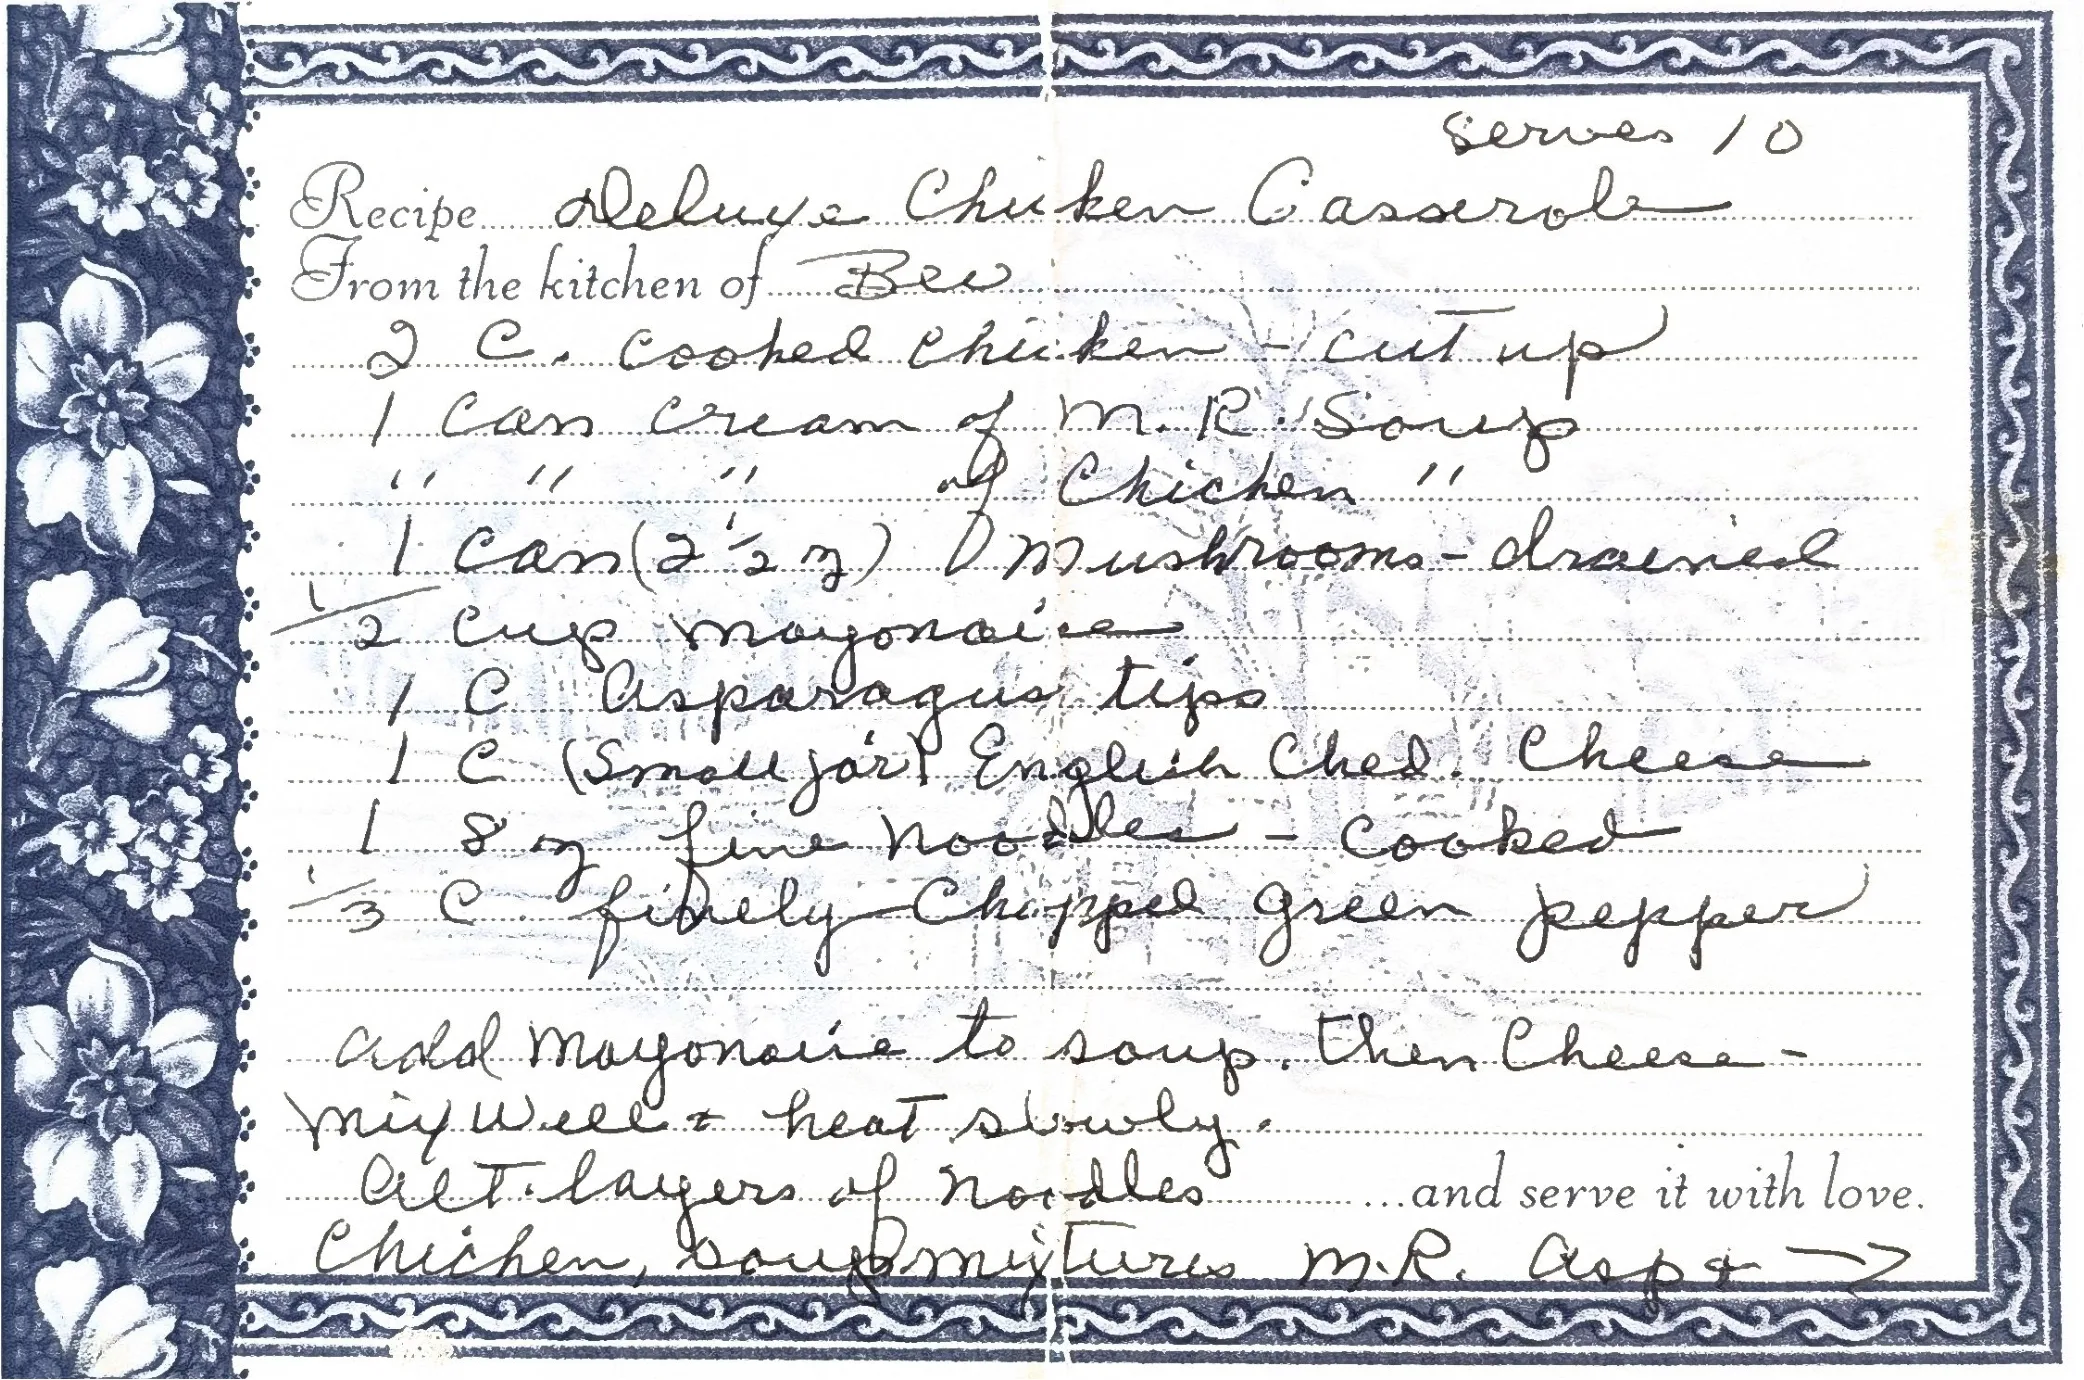 Serves 10
Recipe Deluxe Chicken Casserole
From the kitchen of Bev
2 C. cooked chicken - cut up
1 can cream of M.R. Soup
" " " of Chicken "
1 can (2 1/2 oz) Mushrooms - drained
1/2 cup mayonaise
1 C Asparagus tips
1 C (Small jar) English Ched. Cheese
1 8 oz fine noodles - cooked
1/3 C. finely chopped green pepper
add mayonaise to soup. then Cheese -
mix well & heat slowly.
Alt. layers of noodles ...and serve it with love.
Chicken, soup mixtures M.R. Asp & →